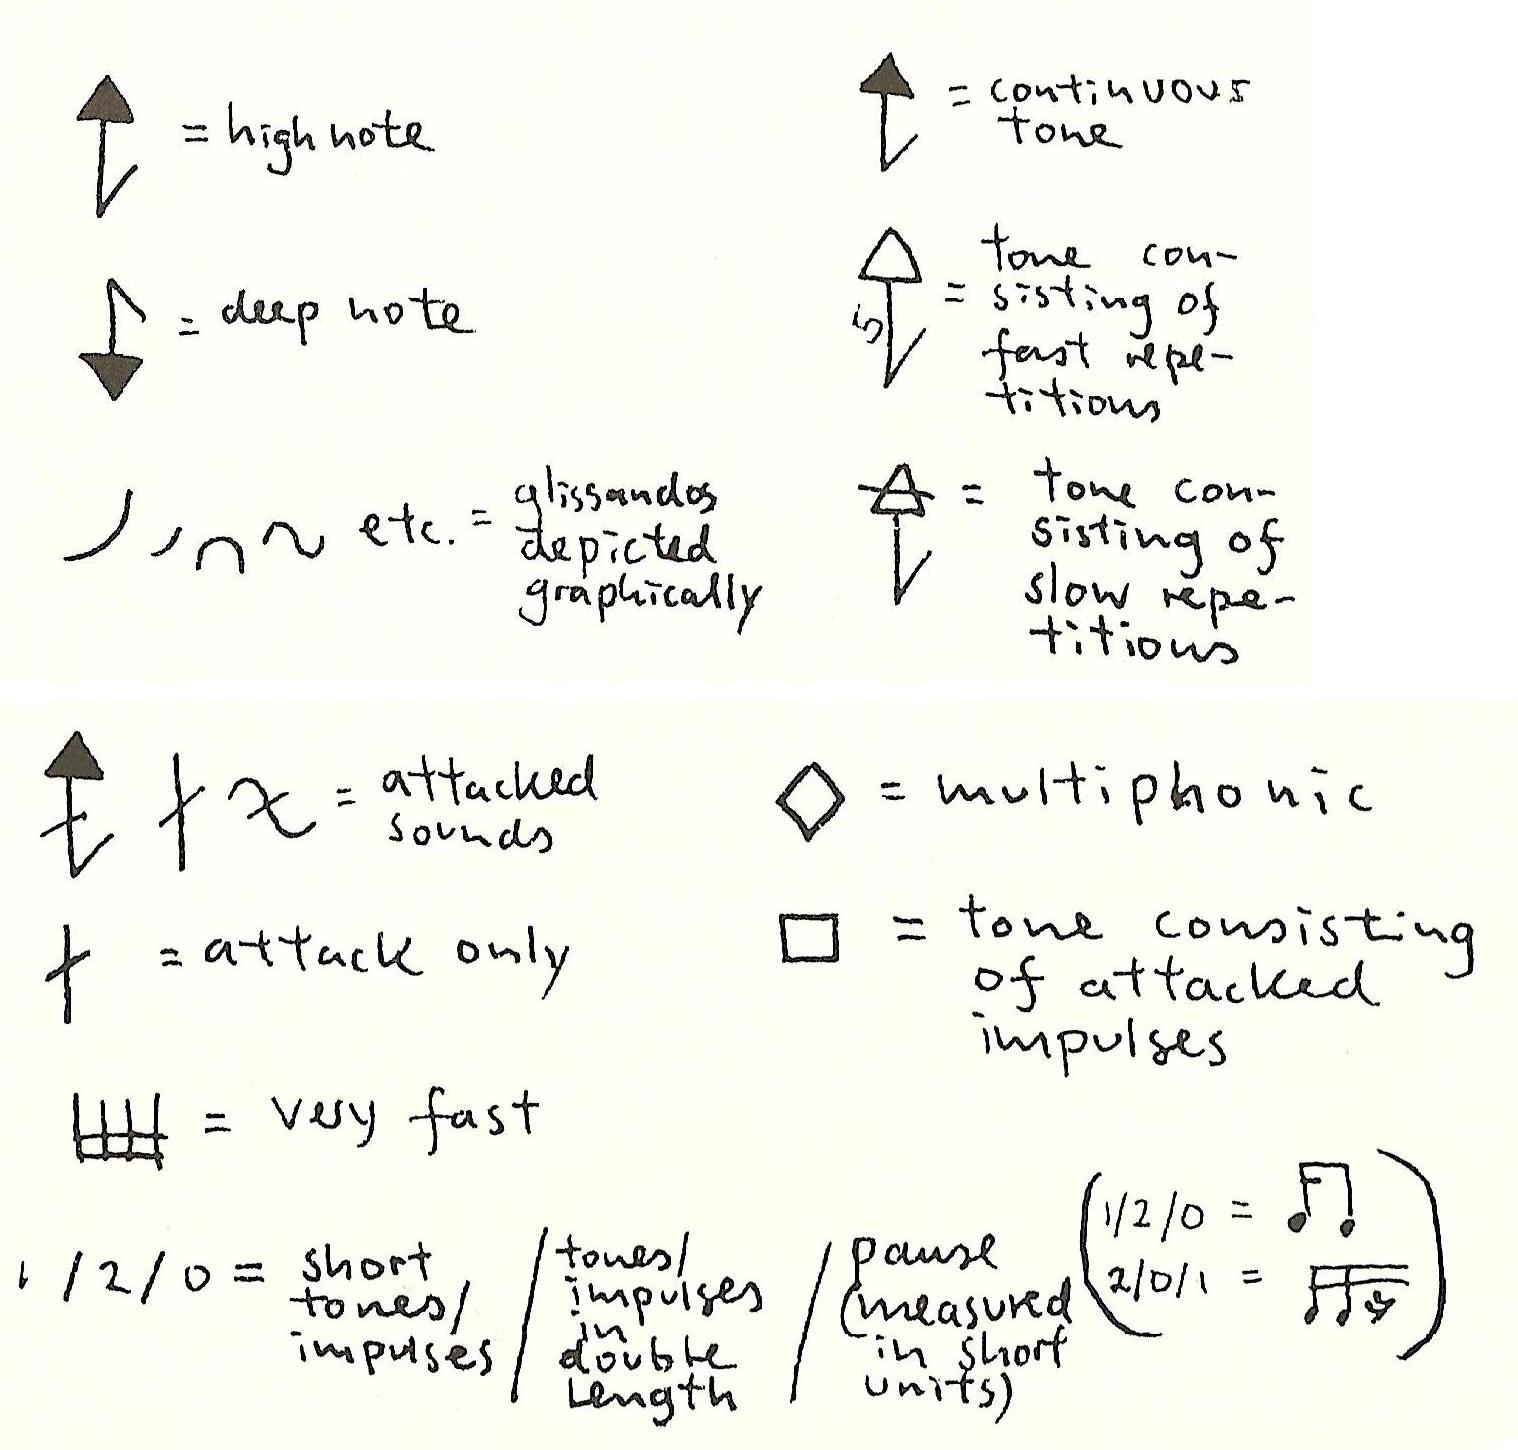 = high note
= deep note
etc. = glissandos
depicted
graphically
= continuous
tone
5
= tone con-
sisting of
fast repe-
titions
= tone con-
sisting of
slow repe-
titions
= attacked
sounds
= attack only
= very fast
= multiphonic
= tone consisting
of attacked
impulses
1/2/0 = short
tones/
impulses
/ tones/
impulses
in
double
length
/ pause
(measured
in short
units)
(1/2/0 =
2/0/1 = )